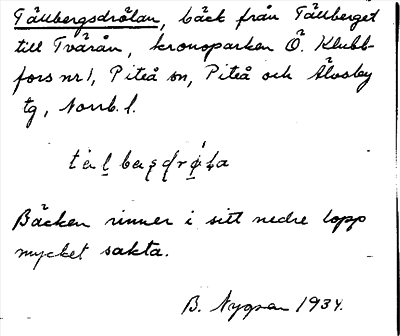 Tällbergsdrölan, bäck från Tällberget
till Tvärån, kronoparken Ö. Klubb-
fors nr 1, Piteå sn, Piteå och Älvsby
tg, Norrb. l.
Bäcken rinner i sitt nedre lopp
mycket sakta.
B. Nygren 1934.